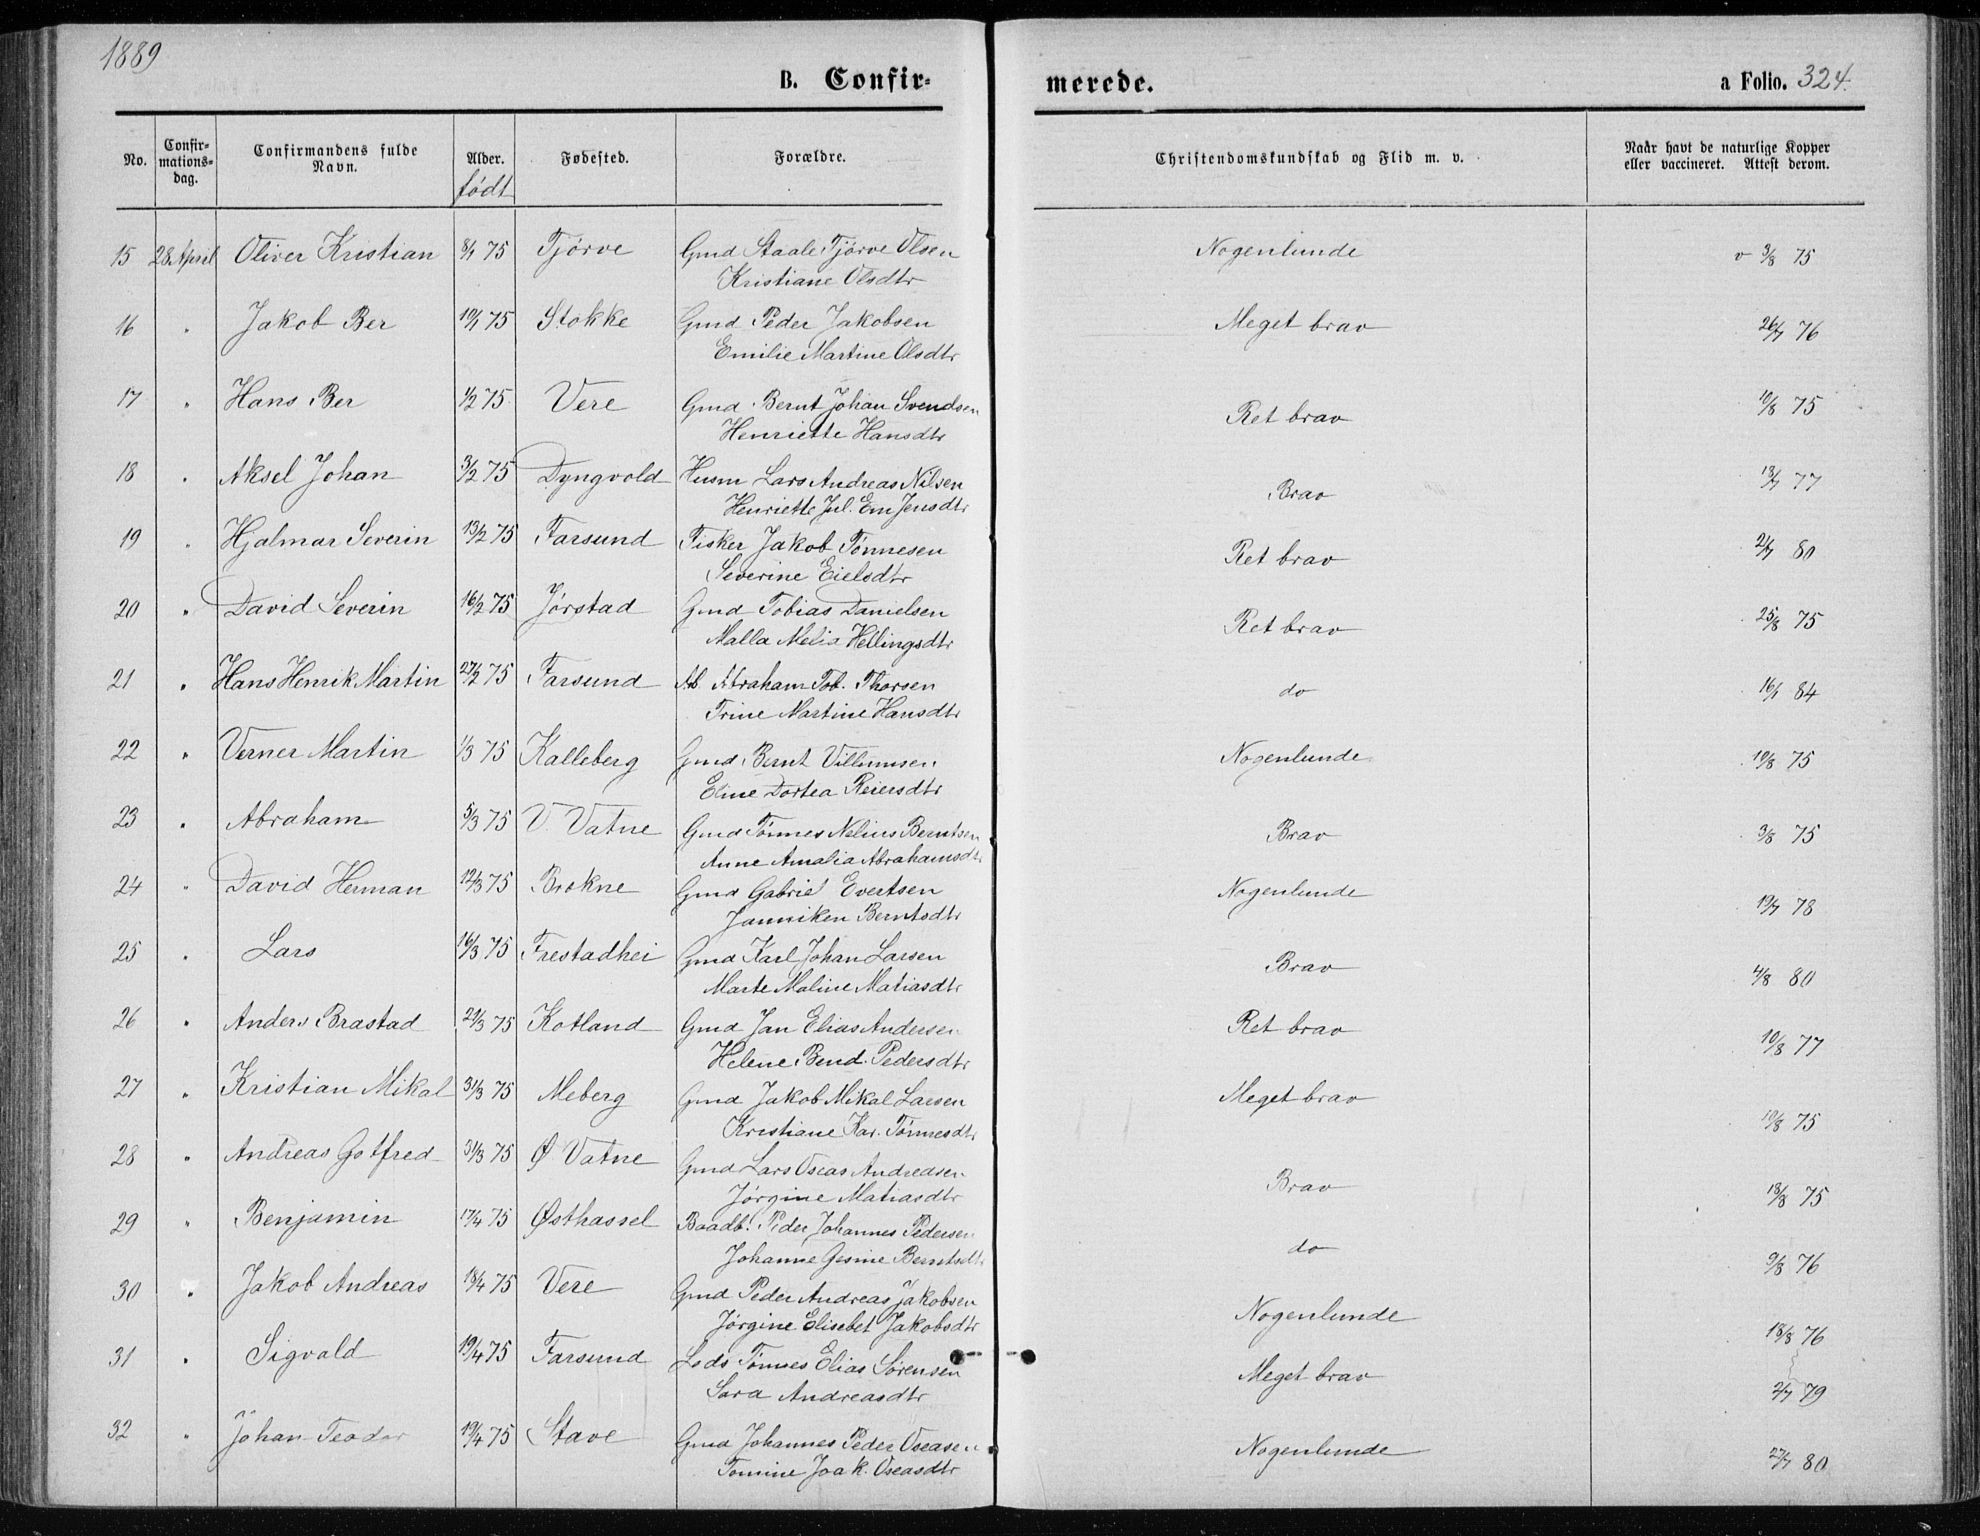 1889
B. Confir-
merede.
a Folio. 324.
No. Confir-mations-dag. Confirmandens fulde Navn. Alder. født Fødested. Forældre. Christendomskundskab og Flid m. v. Naar havt de naturlige Kopper eller vaccineret. Attest derom.
15 28 April Oliver Kristian 8/1 75 Tjørve Gmd Staale Tjørve Olsen Nogenlunde v 3/8 75
Kristiane Olsdtr
16 " Jakob Ber 10/1 75 Stokke Gmd Peder Jakobsen Meget brav 26/7 76
Emilie Martine Olsdtr
17 " Hans Ber 1/2 75 Vere Gmd. Bernt Johan Svendsen Ret brav 10/8 75
Henriette Hansdtr
18 " Aksel Johan 3/2 75 Dyngvold Husm Lars Andreas Nilsen Brav 18/7 77
Henriette Jul. Em Jensdtr
19 " Hjalmar Severin 13/2 75 Farsund Fisker Jakob Tønnesen Ret brav 2/7 80
Severine Eielsdtr
20 " David Severin 16/2 75 Jørstad Gmd Tobias Danielsen Ret brav 25/8 75
Malla Melia Hellingsdtr
21 " Hans Henrik Martin 27/2 75 Farsund Ab. Abraham Tob. Thorsen do 16/1 84
Trine Martine Hansdtr
22 " Verner Martin 1/3 75 Kalleberg Gmd. Bernt Villumsen Nogenlunde 10/8 75
Eline Dortea Reiersdtr
23 " Abraham 5/3 75 V. Vatne Gmd Tønnes Nelius Berntsen Brav 3/8 75
Anne Amalia Abrahamsdtr
24 " David Herman 12/3 75 Brokne Gmd Gabriel Evertsen Nogenlunde 19/7 78
Janniken Berntsdtr
25 " Lars 16/3 75 Frestadhei Gmd Karl Johan Larsen Brav 4/8 80
Marte Maline Matiasdtr
26 " Anders Brastad 21/3 75 Kotland Gmd Jan Elias Andersen Ret brav 10/8 77
Helene Bend. Pedersdtr
27 " Kristian Mikal 31/3 75 Meberg Gmd Jakob Mikal Larsen Meget brav 10/8 75
Kristiane Kar. Tønnesdtr
28 " Andreas Gotfred 31/3 75 Ø Vatne Gmd Lars Oseas Andreasen Brav 18/8 75
Jørgine Matiasdtr
29 " Benjamin 17/4 75 Østhassel Baadb. Peder Johannes Pedersen do 9/8 76
Johanne Gesine Berntsdtr
30 " Jakob Andreas 18/4 75 Vere Gmd Peder Andreas Jakobsen Nogenlunde 18/8 76
Jørgine Elisebet Jakobsdtr
31 " Sigvald 19/4 75 Farsund Lods Tønnes Elias Sørensen Meget brav 2/7 79
Sara Andreasdtr
32 " Johan Teodor 19/4 75 Stave Gmd Johannes Peder Oseasen Nogenlunde 27/7 80
Tomine Joak. Oseasdtr